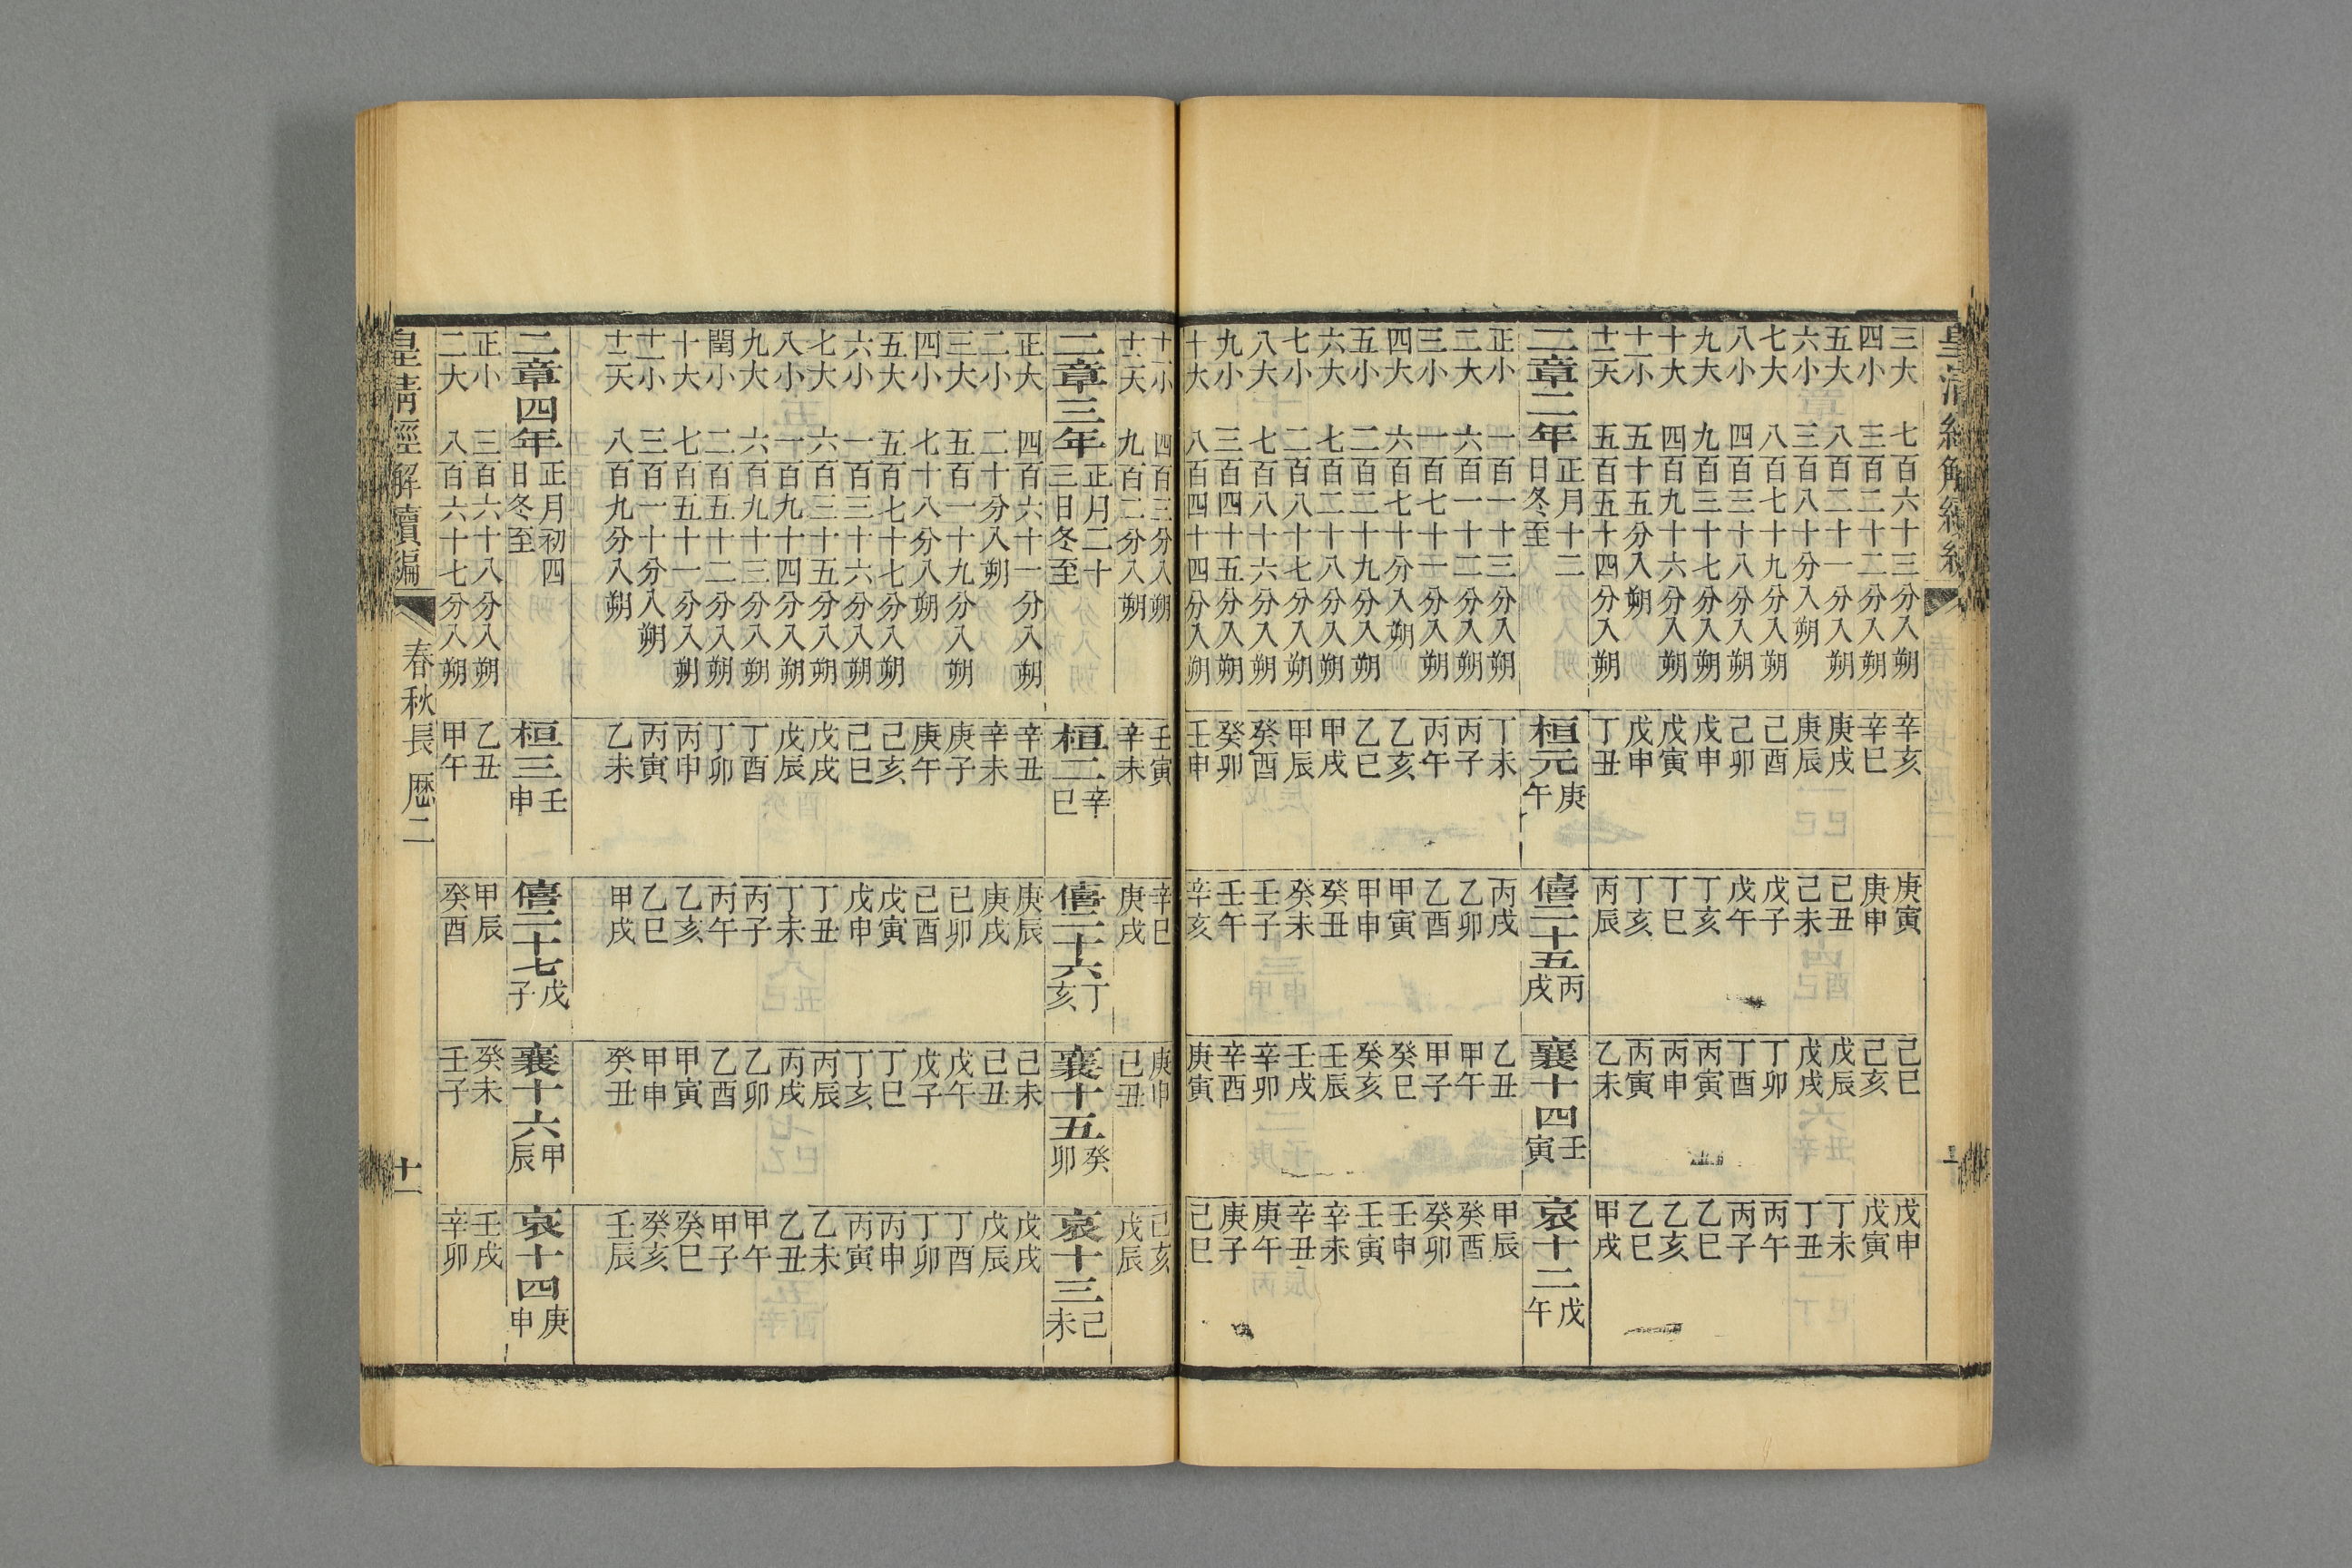 皇清經解續編
三大 七百六十三分入朔 辛亥 庚寅 己巳 戊申
四小 三百二十二分入朔 辛巳 庚申 己亥 戊寅
五大 八百二十一分入朔 庚戌 己丑 戊辰 丁未
六小 三百八十分入朔 庚辰 己未 戊戌 丁丑
七大 八百七十九分入朔 己酉 戊子 丁卯 丙午
八小 四百三十八分入朔 己卯 戊午 丁酉 丙子
九大 九百三十七分入朔 戊申 丁亥 丙寅 乙巳
十大 四百九十六分入朔 戊寅 丁巳 丙申 乙亥
十一小 五十五分入朔 戊申 丁亥 丙寅 乙巳
十二大 五百五十四分入朔 丁丑 丙辰 乙未 甲戌
二章二年 正月十二日冬至 桓元庚午 僖二十五丙戌 襄十四壬寅 哀十二戊午
正小 一百一十三分入朔 丁未 丙戌 乙丑 甲辰
二大 六百一十二分入朔 丙子 乙卯 甲午 癸酉
三小 一百七十一分入朔 丙午 乙酉 甲子 癸卯
四大 六百七十分入朔 乙亥 甲寅 癸巳 壬申
五小 二百二十九分入朔 乙巳 甲申 癸亥 壬寅
六大 七百二十八分入朔 甲戌 癸丑 壬辰 辛未
七小 二百八十七分入朔 甲辰 癸未 壬戌 辛丑
八大 七百八十六分入朔 癸酉 壬子 辛卯 庚午
九小 三百四十五分入朔 癸卯 壬午 辛酉 庚子
十大 八百四十四分入朔 壬申 辛亥 庚寅 己巳
十一小 四百三分入朔 壬寅 辛巳 庚申 己亥
十二大 九百二分入朔 辛未 庚戌 己丑 戊辰
二章三年 正月二十三日冬至 桓二辛巳 僖二十六丁亥 襄十五癸卯 哀十三己未
正大 四百六十一分入朔 辛丑 庚辰 己未 戊戌
二小 二十分入朔 辛未 庚戌 己丑 戊辰
三大 五百一十九分入朔 庚子 己卯 戊午 丁酉
四小 七十八分入朔 庚午 己酉 戊子 丁卯
五大 五百七十七分入朔 己亥 戊寅 丁巳 丙申
六小 一百三十六分入朔 己巳 戊申 丁亥 丙寅
七大 六百三十五分入朔 戊戌 丁丑 丙辰 乙未
八小 一百九十四分入朔 戊辰 丁未 丙戌 乙丑
九大 六百九十三分入朔 丁酉 丙子 乙卯 甲午
閏小 二百五十二分入朔 丁卯 丙午 乙酉 甲子
十大 七百五十一分入朔 丙申 乙亥 甲寅 癸巳
十一小 三百一十分入朔 丙寅 乙巳 甲申 癸亥
十二大 八百九分入朔 乙未 甲戌 癸丑 壬辰
二章四年 正月初四日冬至 桓三壬申 僖二十七戊子 襄十六甲辰 哀十四庚申
正小 三百六十八分入朔 乙丑 甲辰 癸未 壬戌
二大 八百六十七分入朔 甲午 癸酉 壬子 辛卯
皇清經解續編 春秋長歷二 十一